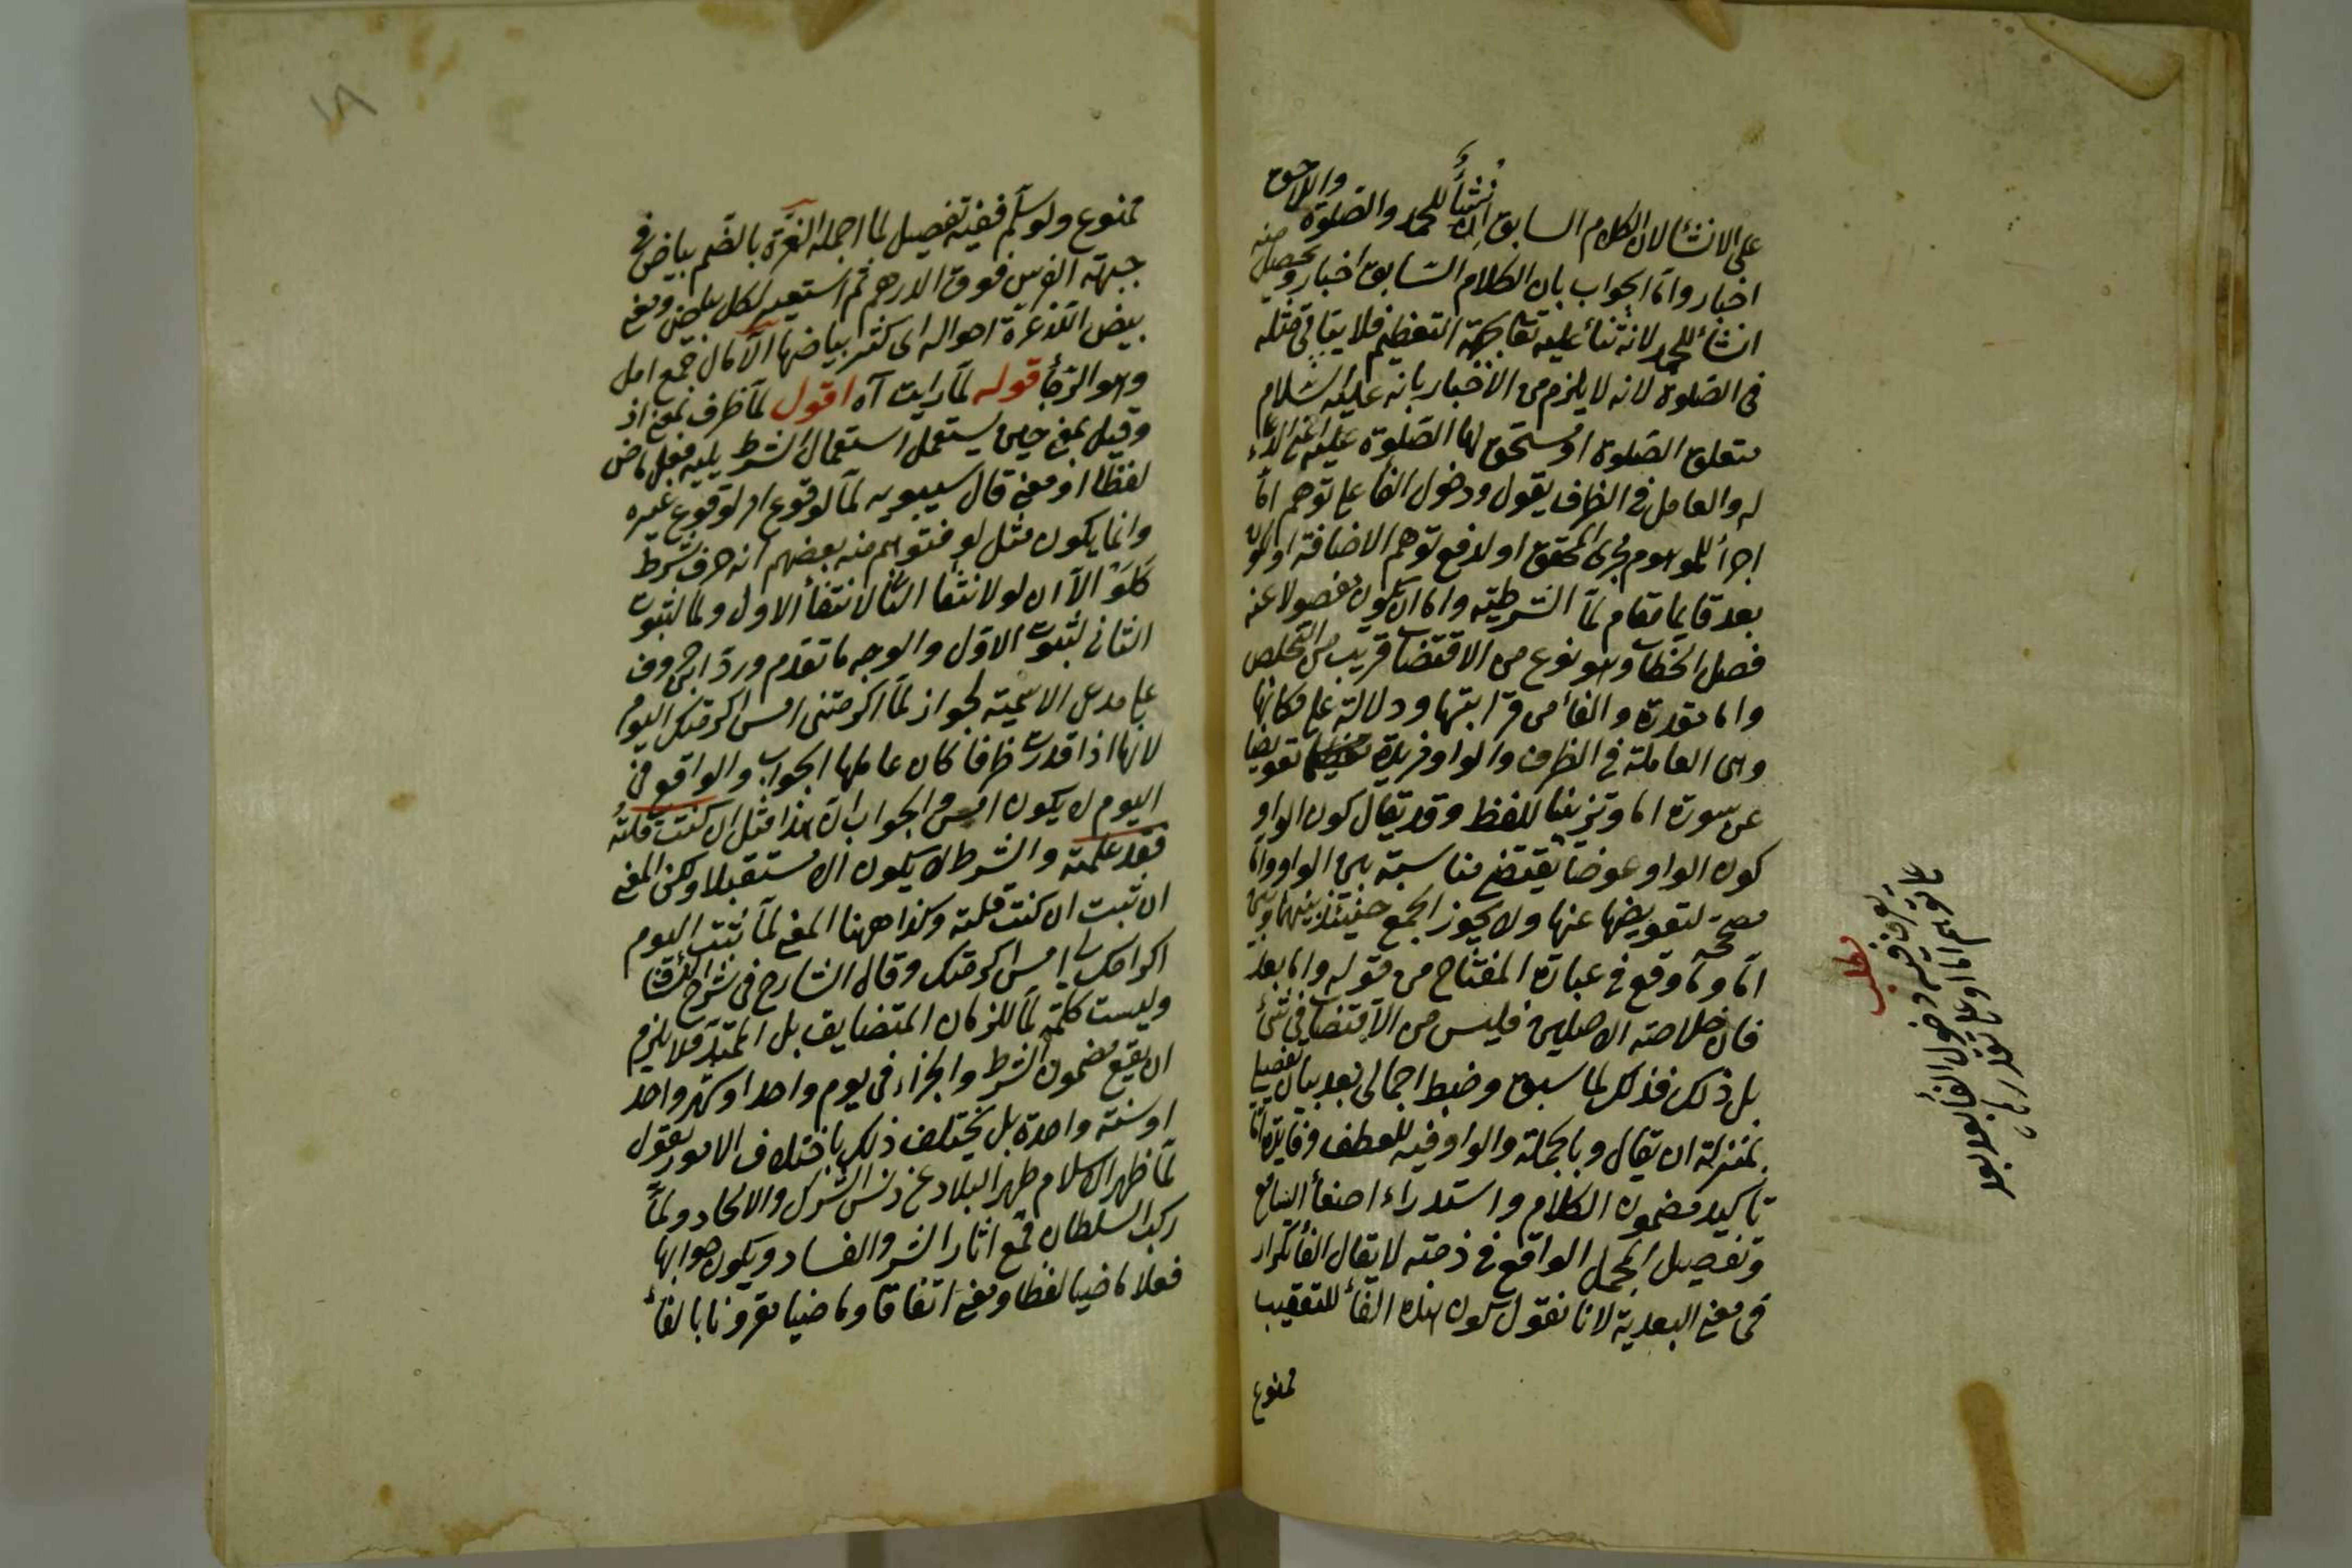 على الانشأ لان الكلام السابق انشأ للحمد والصلوة واللاحق
اخبار واما الجواب بان الكلام السابق اخبار ويحصل منه
انشأ للحمد لانه ثنأ عليه تعا بجهة التعظيم فلا يتأتى مثله
فى الصلوة لانه لا يلزم من الاخبار بانه عليه السلام
متعلق الصلوة او مستحق لها الصلوة عليه اعنى الدعاء
له والعامل فى الظرف يقول ودخول الفأ على توهم اما
اجرأ للموهوم مجرى المحقق او لدفع توهم الاضافة او لكون
بعد قايما مقام لما الشرطية واما ان يكون مفصولا عنه
فصل الخطاب وهو نوع من الاقتضاب قريب من التخلص
واما مقدرة والفأ من قرابتها ودلالة على مكانها
وهى العاملة فى الظرف والواو مزيدة تعويضا
عن صورة اما وتزيينا للفظ وقد يقال كون الواو
كون الواو عوضا يقتضى مناسبة بين الواو واما
مصححة لتعويضها عنها ولا يجوز الجمع حينئذ بينها وبين
اما وما وقع فى عبارة المفتاح من قوله واما بعد
فان خلاصة الاصلين فليس من الاقتضاب فى شئ
بل ذلك فذلكة لما سبق وضبط اجمالى بعد بيان تفصيلى
بمنزلة ان يقال وبالجملة والواو فيه للعطف وفايدة اما
تأكيد مضمون الكلام واستدراء اصغأ السامع
وتفصيل المجمل الواقع فى ذهنه لا يقال الفأ تكرار
فى معنى البعدية لانا نقول كون هذه الفأ للتعقيب
ممنوع
مطلب
يعرف فيه دخول الفأ بعد بعد
على توهم اما او على تقديرها
١٨
ممنوع ولو سلم ففيه تفصيل لما اجمله الغرة بالضم بياض فى
جبهة الفرس فوق الدرهم ثم استعير لكل بياض ومعنى
بيض الله غرة احواله اى كثر بياضها الآمال جمع امل
وهو الرجأ قوله لما رايت آه اقول لما ظرف بمعنى اذ
وقيل بمعنى حين يستعمل استعمال الشرط يليه فعل ماض
لفظا او معنى قال سيبويه لما لوقوع امر لوقوع غيره
وانما يكون مثل لو فتوهم منه بعضهم انه حرف شرط
كلو الا ان لو لانتفا الثانى لانتفأ الاول ولما لثبوت
الثانى لثبوت الاول والوجه ما تقدم ورد ابن خروف
على مدعى الاسمية لجواز لما اكرمتنى امس اكرمتك اليوم
لانها اذا قدرت ظرفا كان عاملها الجواب والواقع فى
اليوم لا يكون امس والجواب ان هذا مثل ان كنت قلته
فقد علمته والشرط لا يكون الا مستقبلا ولكن المعنى
ان ثبت ان كنت قلته وكذا ههنا المعنى لما ثبت اليوم
اكرامك امس اكرمتك وقال الشارح فى شرح الكشاف
وليست كلمة لما للزمان المتضايق بل الممتد فلا يلزم
ان يقع مضمون الشرط والجزاء فى يوم واحد او شهر واحد
او سنة واحدة بل يختلف ذلك باختلاف الامور يقول
لما ظهر الاسلام طهر البلاد عن دنس الشرك والالحاد ولما
ركب السلطان قمع اثار الشر والفساد ويكون جوابها
فعلا ماضيا لفظا ومعنى اتفاقا وماضيا مقرونا بالفأ